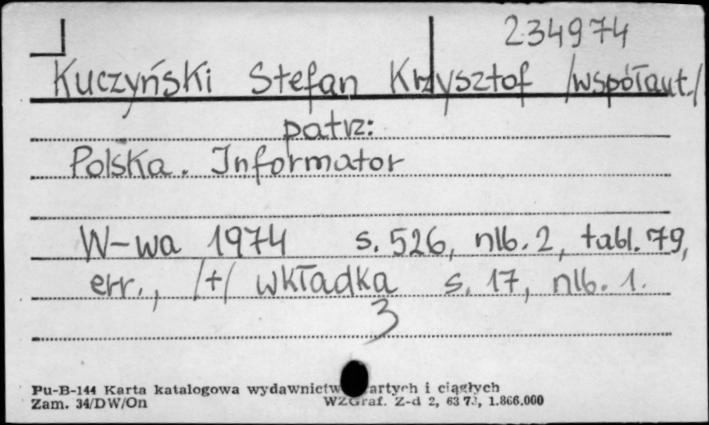 234974
Kuczyński Stefan Krzysztof /współaut./
patrz:
Polska. Informator
W-wa 1974 s. 526, nlb. 2, tabl. 79,
err., /+/ wkładka s. 17, nlb. 1.
3
Pu-B-144 Karta katalogowa wydawnictw i ciągłych
Zam. 34/DW/On WZGraf. Z-d 2, 1.866.000